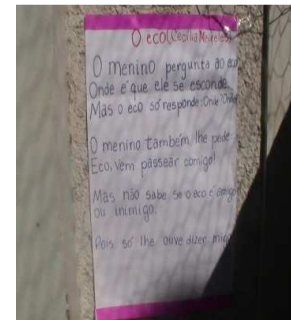 O eco (Cecília Meireles)
O menino pergunta ao eco
Onde é que ele se esconde.
Mas o eco só responde: Onde? Onde?
O menino também lhe pede
Eco, vem passear comigo!
Mas não sabe se o eco é amigo
ou inimigo.
Pois só lhe ouve dizer: migo